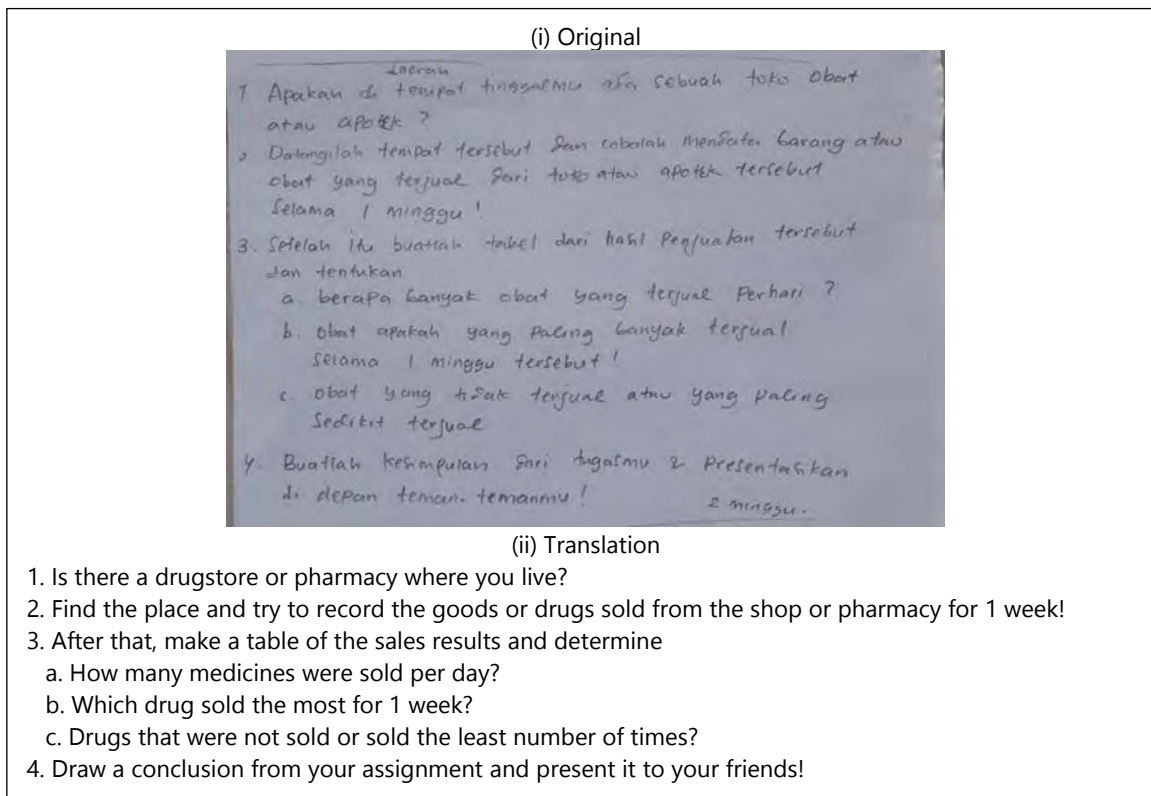 (i) Original
daerah
1 Apakah di tempat tinggalmu ada sebuah toko obat
atau apotek ?
2 Datangilah tempat tersebut dan cobalah mendata barang atau
obat yang terjual dari toko atau apotek tersebut
selama 1 minggu !
3. Setelah itu buatlah tabel dari hasil Penjualan tersebut
dan tentukan
a. berapa banyak obat yang terjual Perhari ?
b. obat apakah yang paling banyak terjual
selama 1 minggu tersebut !
c. obat yang tidak terjual atau yang paling
sedikit terjual
4. Buatlah kesimpulan dari tugasmu & Presentasikan
di depan teman-temanmu !
2 minggu.
(ii) Translation
1. Is there a drugstore or pharmacy where you live?
2. Find the place and try to record the goods or drugs sold from the shop or pharmacy for 1 week!
3. After that, make a table of the sales results and determine
a. How many medicines were sold per day?
b. Which drug sold the most for 1 week?
c. Drugs that were not sold or sold the least number of times?
4. Draw a conclusion from your assignment and present it to your friends!